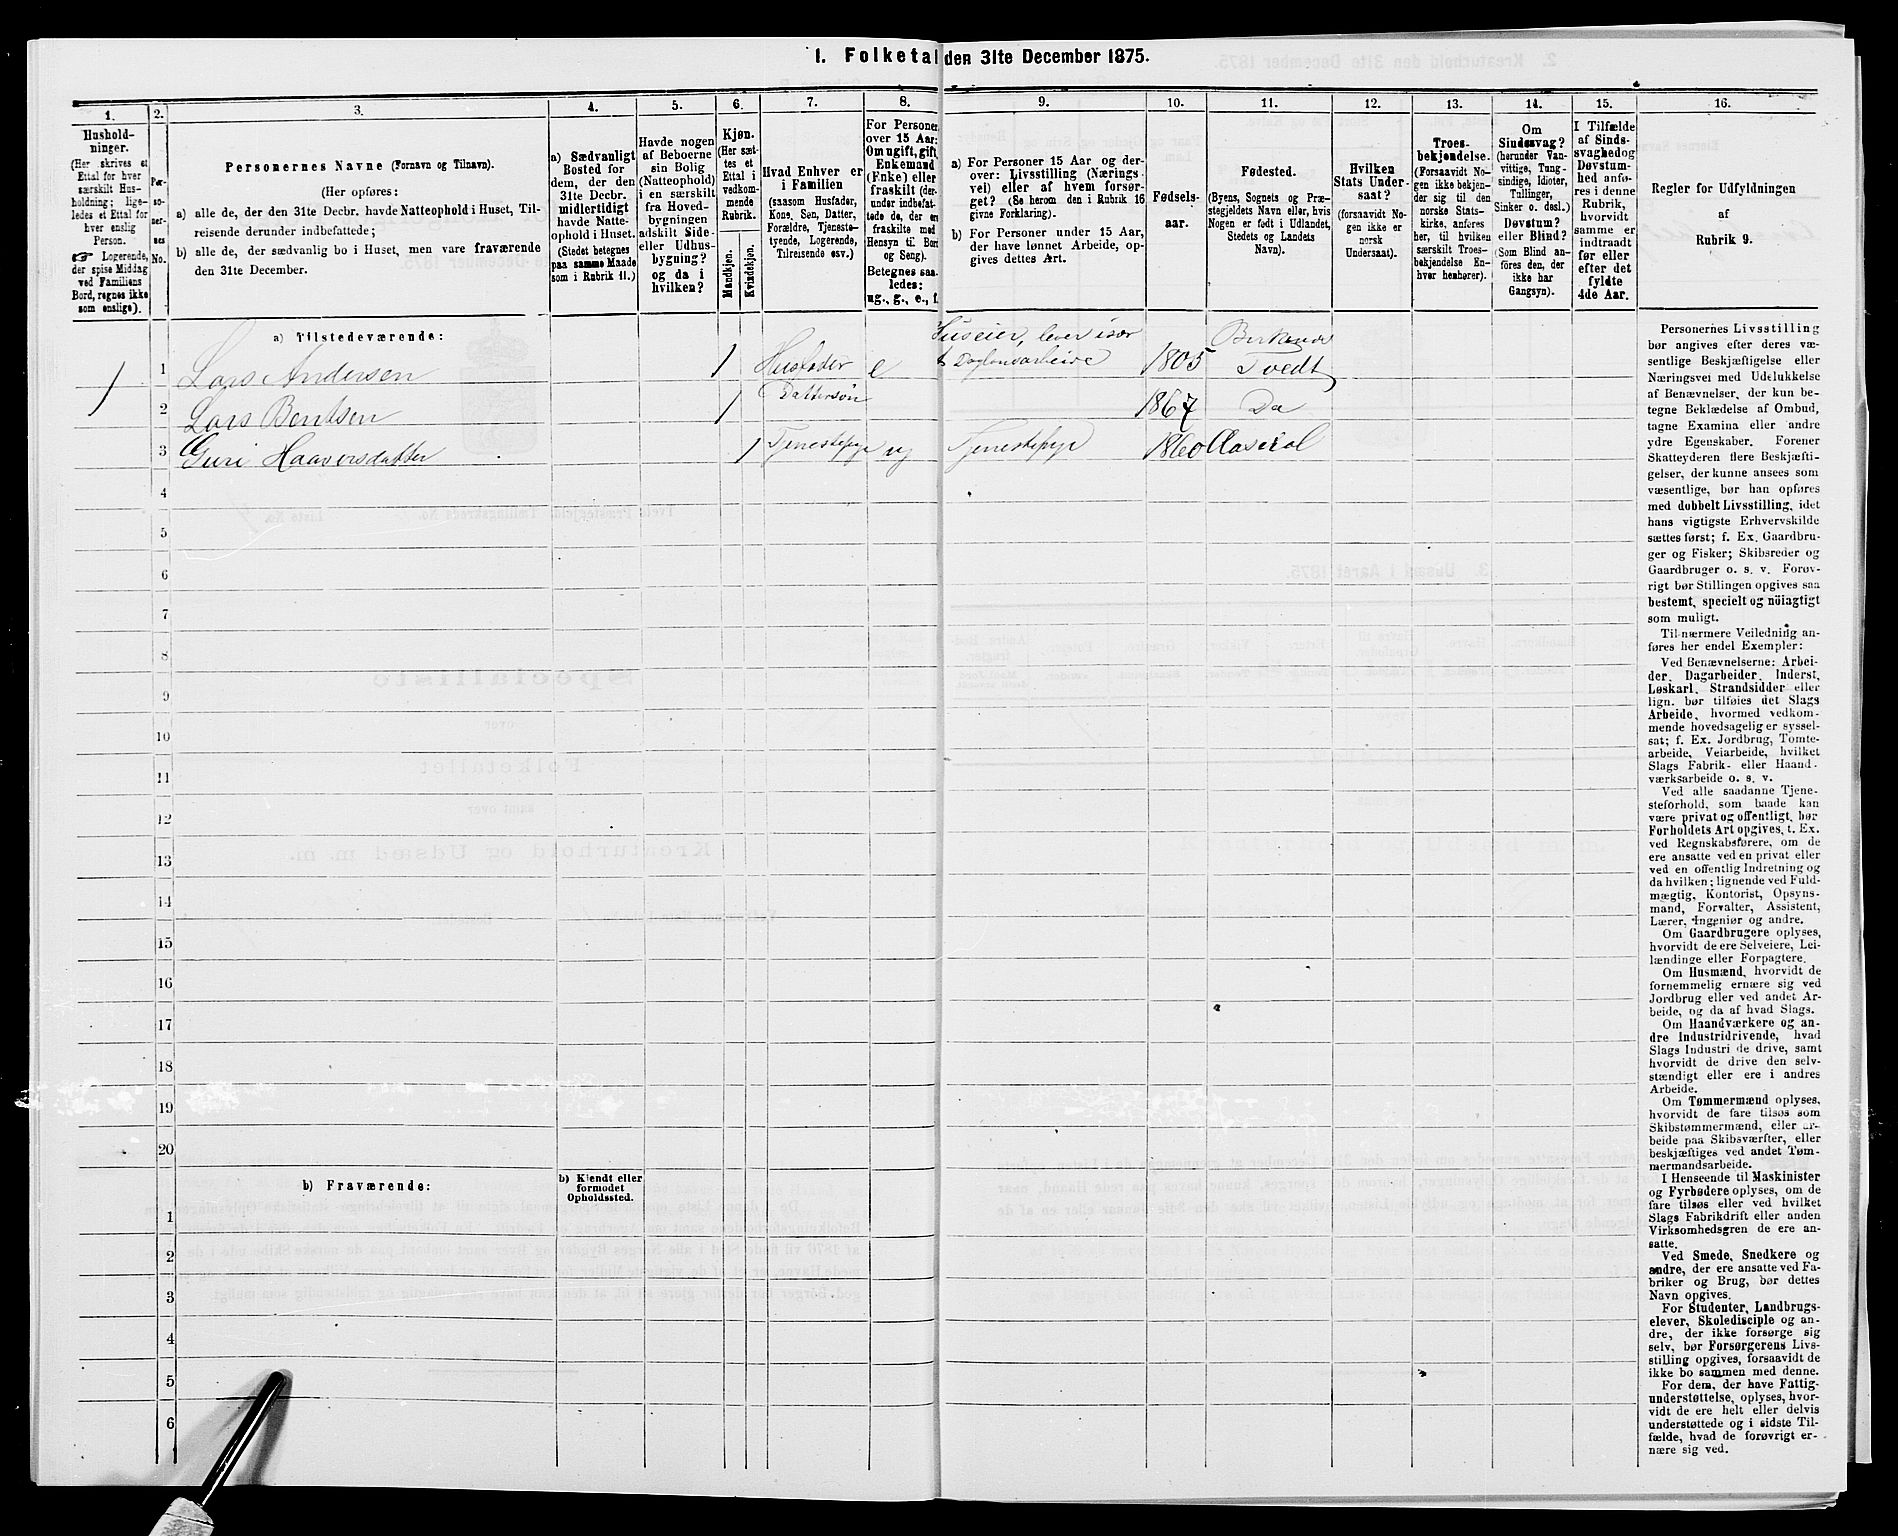 1. Folketal den 31te December 1875.
1.
2.
3.
4.
5.
6.
7.
8.
9.
10.
11.
12.
13.
14.
15.
16.
Hushold-
ninger.
(Her skrives et
Ettal for hver
særskilt Hus-
holdning; lige-
ledes et Ettal for
hver enslig
Person.
☞ Logerende,
der spise Middag
ved Familiens
Bord, regnes ikke
som enslige).
Per-
so-
ner-
nes
No.
Personernes Navne (Fornavn og Tilnavn).
(Her opføres:
a) alle de, der den 31te Decbr. havde Natteophold i Huset, Til-
reisende derunder indbefattede;
b) alle de, der sædvanlig bo i Huset, men vare fraværende
den 31te December.
a) Sædvanligt
Bosted for
dem, der den
31te Decbr.
midlertidigt
havde Natte-
ophold i Huset.
(Stedet betegnes
paa samme Maade
som i Rubrik 11.)
Havde nogen
af Beboerne
sin Bolig
(Natteophold)
i en særskilt
fra Hoved-
bygningen
adskilt Side-
eller Udhus-
bygning?
og da i
hvilken?
Kjøn.
(Her sæt-
tes et
Ettal i
vedkom-
mende
Rubrik.
Mandkjøn.
Kvindekjøn.
Hvad Enhver er
i Familien
(saasom Husfader,
Kone, Søn, Datter,
Forældre, Tjeneste-
tyende, Logerende,
Tilreisende osv.)
For Personer
over 15 Aar:
Om ugift, gift,
Enkemand
(Enke) eller
fraskilt (der-
under indbefat-
tede de, der er
fraskilte med
Hensyn til Bord
og Seng).
Betegnes saa-
ledes:
ug., g., e., f.
a) For Personer 15 Aar og der-
over: Livsstilling (Nærings-
vei) eller af hvem forsør-
get? (Se herom den i Rubrik 16
givne Forklaring).
b) For Personer under 15 Aar,
der have lønnet Arbeide, op-
gives dettes Art.
Fødsels-
aar.
Fødested.
(Byens, Sognets og Præ-
stegjeldets Navn eller, hvis
Nogen er født i Udlandet,
Stedets og Landets
Navn).
Hvilken
Stats Under-
saat?
(forsaavidt No-
gen ikke er
norsk
Undersaat).
Troes-
bekjendelse.
(Forsaavidt No-
gen ikke bekjen-
der sig til den
norske Stats-
kirke, anføres
her, til hvilken
særskilt Troes-
bekjendelse En-
hver henhører).
Om
Sindssvag?
(herunder Van-
vittige, Tung-
sindige, Idioter,
Tullinger,
Sinker o. desl.)
Døvstum?
eller Blind?
(Som Blind an-
føres den, der
ikke har
Gangsyn).
I Tilfælde
af Sinds-
svaghed og
Døvstum-
hed anfø-
res i denne
Rubrik,
hvorvidt
samme er
indtraadt
før eller
efter det
fyldte
4de Aar.
Regler for Udfyldningen
af
Rubrik 9.
a) Tilstedeværende:
1 1 Lars Andersen 1 Husfader e Huseier, lever især
t Daglønsarbeide 1805 Tvedt
2 Lars Bentsen 1 Dattersøn 1867 Do
3 Guri Haaversdatter 1 Tjenestepige ug Tjenestepige 1860
4
5
6
7
8
9
10
11
12
13
14
15
16
17
18
19
20
b) Fraværende:
b) Kjendt eller
formodet
Opholdssted.
1
2
3
4
5
6
Personernes Livsstilling
bør angives efter deres væ-
sentlige Beskjæftigelse eller
Næringsvei med Udelukkelse
af Benævnelser, der kun be-
tegne Beklædelse af Ombud,
tagne Examina eller andre
ydre Egenskaber. Forener
Skatteyderen flere Beskjæfti-
gelser, der kunne ansees som
væsentlige, bør han opføres
med dobbelt Livsstilling, idet
hans vigtigste Erhvervskilde
sættes først; f. Ex. Gaardbru-
ger og Fisker; Skibsreder og
Gaardbruger o. s. v. Forøv-
rigt bør Stillingen opgives saa
bestemt, specielt og nöiagtigt
som muligt.
Til nærmere Veiledning an-
føres her endel Exempler:
Ved Benævnelserne: Arbei-
der, Dagarbeider, Inderst,
Løskarl, Strandsidder eller
lign. bør tilføies det Slags
Arbeide, hvormed vedkom-
mende hovedsagelig er syssel-
sat; f. Ex. Jordbrug, Tomte-
arbeide, Veiarbeide, hvilket
Slags Fabrik- eller Haand-
værksarbeide o. s. v.
Ved alle saadanne Tjene-
steforhold, som baade kan
være privat og offentligt, bør
Forholdets Art opgives, t. Ex.
ved Regnskabsførere, om de
ere ansatte ved en privat eller
ved en offentlig Indretning og
da hvilken; lignende ved Fuld-
mægtig, Kontorist, Opsyns-
mand, Forvalter, Assistent,
Lærer, Ingeniør og andre.
Om Gaardbrugere oplyses,
hvorvidt de ere Selveiere, Lei-
lændinge eller Forpagtere.
Om Husmænd, hvorvidt de
fornemmelig ernære sig ved
Jordbrug eller ved andet Ar-
beide, og da af hvad Slags.
Om Haandværkere og an-
dre Industridrivende, hvad
Slags Industri de drive, samt
hvorvidt de drive den selv-
stændigt eller ere i andres
Arbeide.
Om Tømmermænd oplyses,
hvorvidt de fare tilsøs som
Skibstømmermænd, eller ar-
beide paa Skibsværfter, eller
beskjæftiges ved andet Tøm-
mermandsarbeide.
I Henseende til Maskinister
og Fyrbødere oplyses, om de
fare tilsøs eller ved hvilket
Slags Fabrikdrift eller anden
Virksomhedsgren de ere an-
satte.
Ved Smede, Snedkere og
andre, der ere ansatte ved Fa-
briker og Brug, bør dettes
Navn opgives.
For Studenter, Landbrugs-
elever, Skoledisciple og an-
dre, der ikke forsørge sig
selv, bør Forsørgerens Livs-
stilling opgives, forsaavidt de
ikke bo sammen med denne.
For dem, der have Fattig-
understøttelse, oplyses, hvor-
vidt de ere helt eller delvis
understøttede og i sidste Til-
fælde, hvad de forøvrigt er-
nære sig ved.